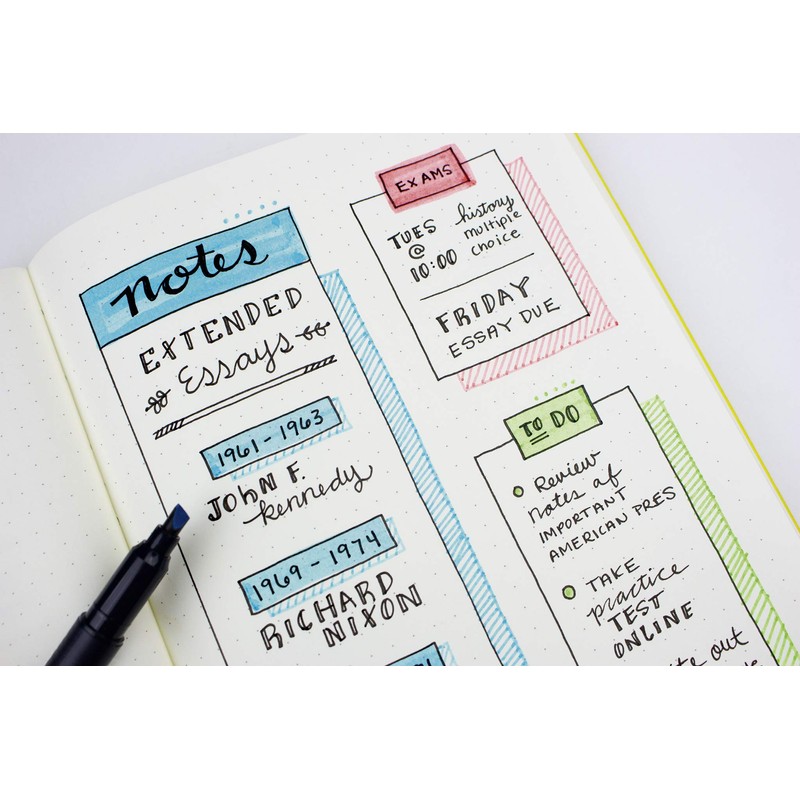 Notes
EXTENDED
Essays
1961 - 1963
JOHN F.
kennedy
1969 - 1974
RICHARD
NIXON
EXAMS
TUES
@
10:00
history
multiple
choice
FRIDAY
ESSAY DUE
TO DO
Review
notes of
IMPORTANT
AMERICAN PRES
TAKE
practice
TEST
ONLINE
out